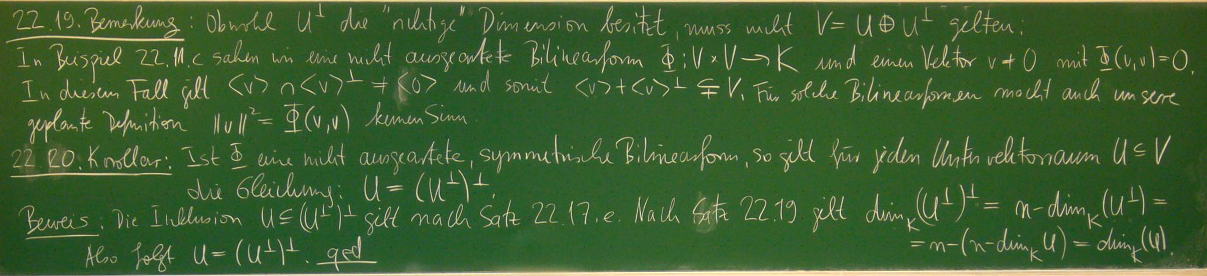 22.19. Bemerkung: Obwohl U^⊥ die "richtige" Dimension besitzt, muss nicht V = U ⊕ U^⊥ gelten.
In Beispiel 22.11.c sahen wir eine nicht ausgeartete Bilinearform Φ: V × V → K und einen Vektor v ≠ 0 mit Φ(v,v)=0.
In diesem Fall gilt <v> ∩ <v>^⊥ ≠ <0> und somit <v> + <v>^⊥ ⊊ V. Für solche Bilinearformen macht auch unsere
geplante Definition ||v||² = Φ(v,v) keinen Sinn.
22.20. Korollar: Ist Φ eine nicht ausgeartete, symmetrische Bilinearform, so gilt für jeden Untervektorraum U ⊆ V
die Gleichung: U = (U^⊥)^⊥.
Beweis: Die Inklusion U ⊆ (U^⊥)^⊥ gilt nach Satz 22.17.e. Nach Satz 22.19 gilt dim_K (U^⊥)^⊥ = n - dim_K (U^⊥) =
= n - (n - dim_K U) = dim_K (U).
Also folgt U = (U^⊥)^⊥. qed